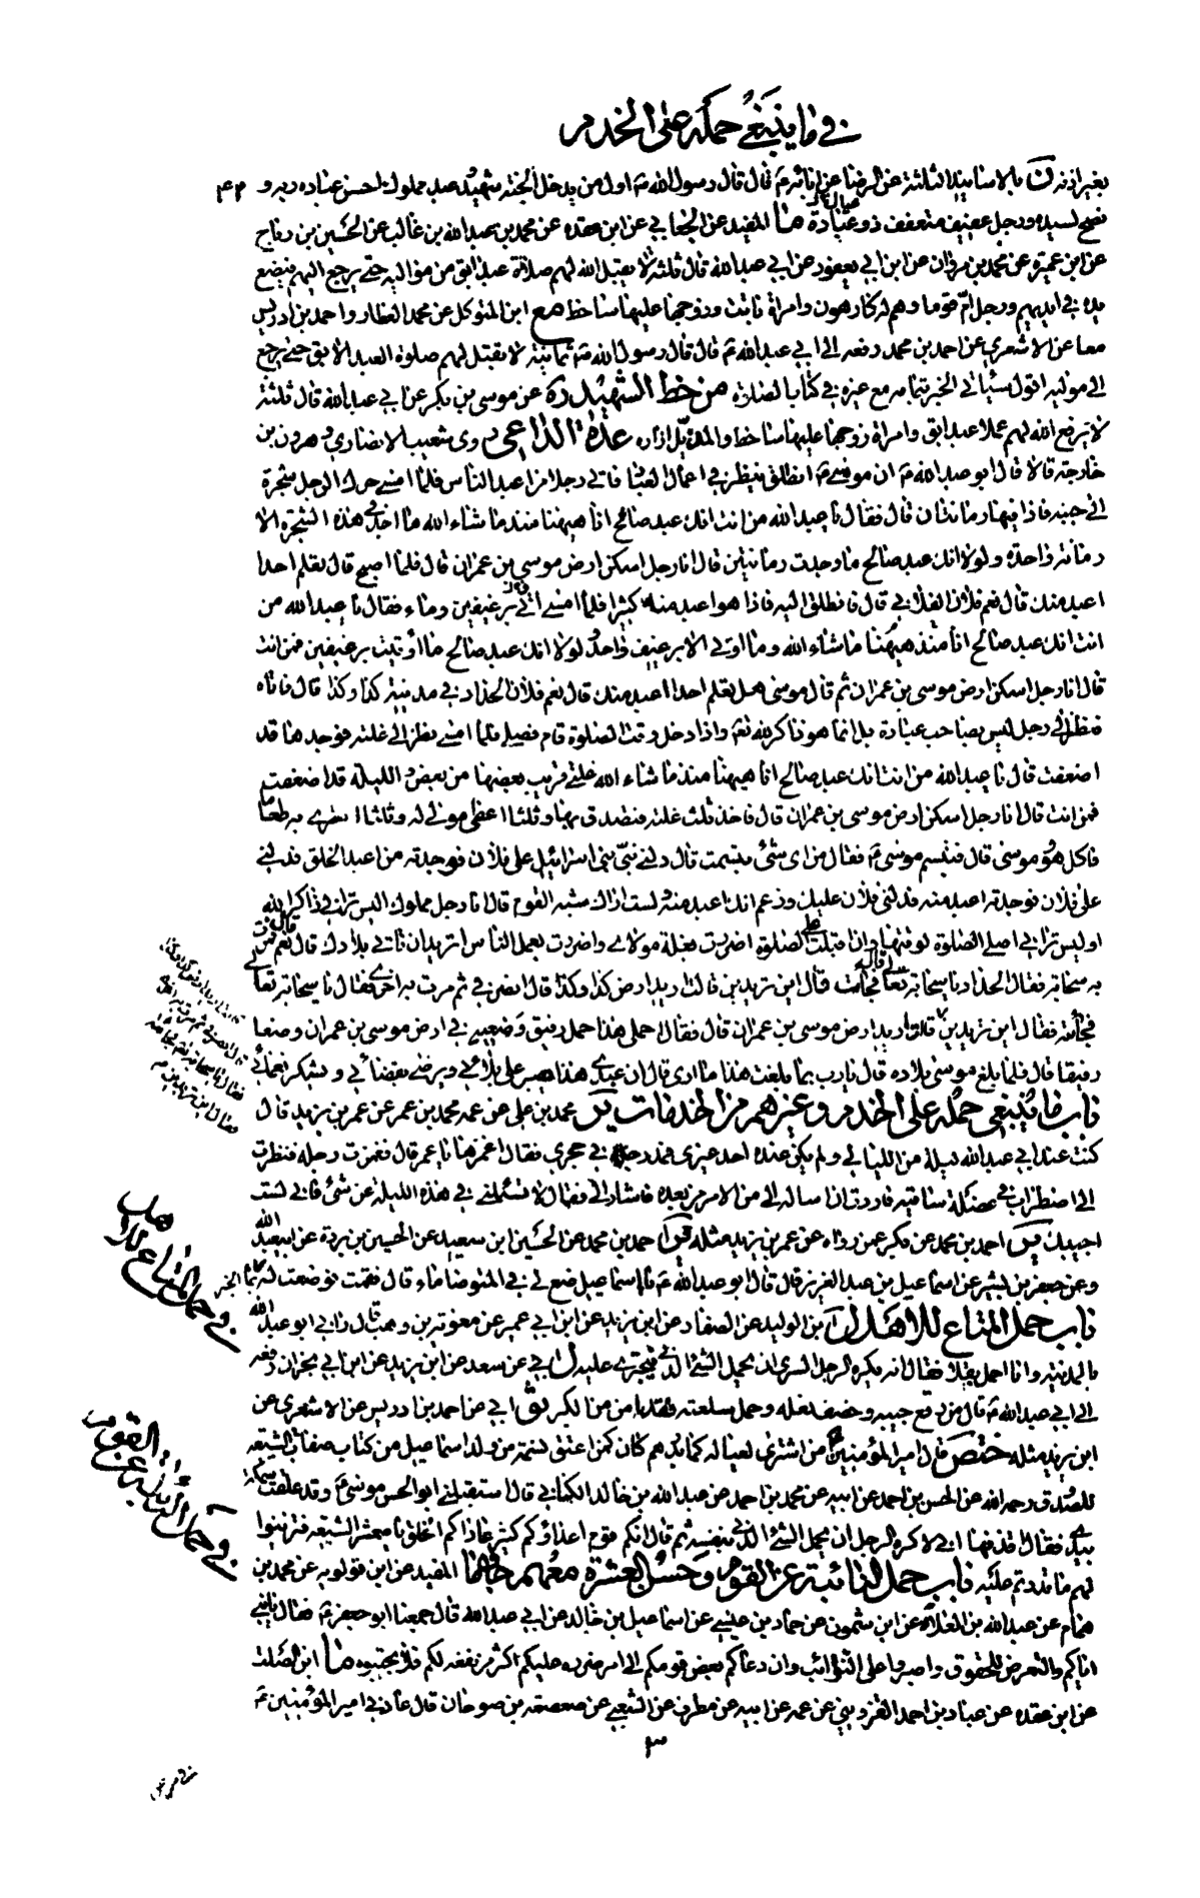 في ما ينبغي حمله على الخدم
بغير اذنه ن بالاسانيد الثلثة عن الرضا عن ابائه ع قال قال رسول الله ص اول من يدخل الجنة شهيد وعبد مملوك احسن عبادة ربه و ٤٢
نصح لسيده ورجل عفيف متعفف ذو عبادة ما المفيد عن الجعابي عن ابن عقده عن محمد بن عبد الله بن غالب عن الحسين بن رباح
عن ابن عميرة عن محمد بن مروان عن ابن ابي يعفور عن ابي عبد الله قال ثلثة لا يقبل الله لهم صلاة عبد ابق من مواليه حتى يرجع اليهم فيضع
يده في ايديهم ورجل ام قوما وهم له كارهون وامراة باتت وزوجها عليها ساخط مع ابن المتوكل عن محمد العطار واحمد بن ادريس
معا عن الاشعري عن احمد بن محمد رفعه الى ابي عبد الله ع قال قال رسول الله ص ثمانية لا يقبل لهم صلوة العبد الابق حتى يرجع
الى موليه اقول سياتي الخبر بتمامه مع غيره في كتاب الصلاة من خط الشهيد ره عن موسى بن بكر عن ابي عبد الله قال ثلثة
لا يرفع الله لهم عملا عبد ابق وامراة زوجها عليها ساخط والمذيل ازاره عدة الداعي روى شعيب الانصاري وهرون بن
خارجة قالا قال ابو عبد الله ع ان موسى ع انطلق ينظر في اعمال العباد فاتى رجلا من اعبد الناس فلما امسى حرك الرجل شجرة
الى جنبه فاذا فيها رمانتان قال فقال يا عبد الله من انت انك عبد صالح انا ههنا منذ ما شاء الله ما اجد في هذه الشجرة الا
رمانة واحدة ولولا انك عبد صالح ما وجدت رمانتين قال انا رجل اسكن ارض موسى بن عمران قال فلما اصبح قال تعلم احدا
اعبد منك قال نعم فلان الفلاني قال فانطلق اليه فاذا هو اعبد منه كثيرا فلما امسى اتي برغيفين وماء فقال يا عبد الله من
انت انك عبد صالح انا منذ ههنا ما شاء الله وما اوتى الا برغيف واحد ولولا انك عبد صالح ما اوتيت برغيفين فمن انت
قال انا رجل اسكن ارض موسى بن عمران ثم قال موسى هل تعلم احدا اعبد منك قال نعم فلان الحداد في مدينة كذا وكذا قال فاتاه
فنظر الى رجل ليس بصاحب عبادة بل انما هو ذاكر لله تع واذا دخل وقت الصلوة قام فصلى فلما امسى نظر الى غلته فوجدها قد
اضعفت قال يا عبد الله من انت انك عبد صالح انا ههنا منذ ما شاء الله غلتي قريب بعضها من بعض والليلة قد اضعفت
فمن انت قال انا رجل اسكن ارض موسى بن عمران قال فاخذ ثلث غلته فتصدق بها وثلثا اعطى مولى له وثلثا اشترى به طعاما
فاكل هو وموسى قال فتبسم موسى ع فقال من اي شئ تبسمت قال دلني نبي بني اسرائيل على فلان فوجدته من اعبد الخلق فدلني
على فلان فوجدته اعبد منه فدلني فلان عليك وزعم انك اعبد منه ولست اراك شبه القوم قال انا رجل مملوك اليس تراني ذاكرا لله
اوليس تراني اصلي الصلوة لوقتها وان اقبلت على الصلوة اضررت بغلة مولاي واضررت بعمل الناس اتريد ان تاتي بلادك قال نعم قال فمرت
به سحابة فقال الحداد يا سحابة تعالى قال فجاءت قال اين تريدين قالت اريد ارض كذا وكذا قال انصرفي ثم مرت به اخرى فقال يا سحابة تعالى
فجائته فقال اين تريدين قالت اريد ارض موسى بن عمران قال فقال احملي هذا حمل رفيق وضعيه في ارض موسى بن عمران وضعا
رفيقا قال فلما بلغ موسى بلاده قال يا رب بما بلغت هذا ما ارى قال ان عبدي هذا يصبر على بلائي ويرضى بقضائي ويشكر نعمائي
باب ما ينبغي حمله على الخدم وغيرهم من الخدمات ير محمد بن علي عن عمه محمد بن عمر عن عمر بن يزيد قال
كنت عند ابي عبد الله ليلة من الليالي ولم يكن عنده احد غيري فمد رجله في حجري فقال اغمزها يا عمر قال فغمزت رجله فنظرت
الى اضطراب في عضلة ساقيه فاردت ان اساله الى من الامر من بعده فاشار الي فقال لا تسئلني في هذه الليلة عن شئ فاني لست
اجيبك ير احمد بن محمد عن بكير عمن رواه عن عمر بن يزيد مثله ير احمد بن محمد عن الحسين ابن سعيد عن الحسين بن بردة عن ابي عبد الله
وعن جعفر بن بشير عن اسماعيل بن عبد العزيز قال قال ابو عبد الله ع يا اسماعيل ضع لي في المتوضا ماء قال فقمت فوضعت له تمام الخبر
باب حمل المتاع للاهل ل ابن الوليد عن الصفار عن ابن يزيد عن ابن ابي عمير عن معوية بن وهب قال راني ابو عبد الله
بالمدينة وانا احمل بقلا فقال انه يكره للرجل السري ان يحمل الشئ الدني فيجترى عليه ل ابي عن سعد عن ابن يزيد عن ابن ابي نجران رفعه
الى ابي عبد الله ع قال من رقع جيبه وخصف نعله وحمل سلعته فقد امن من الكبر ثو ابي عن احمد بن ادريس عن الاشعري عن
ابن يزيد مثله ختص قال امير المؤمنين ع من اشترى لعياله لحما بدرهم كان كمن اعتق نسمة من ولد اسماعيل من كتاب صفات الشيعة
للصدوق رحمه الله عن الحسن بن احمد عن ابيه عن محمد بن احمد عن عبد الله بن خالد الكناني قال استقبلني ابو الحسن موسى ع وقد علقت سمكة
بيدي فقال اقذفها اني لاكره للرجل ان يحمل الشئ الدني بنفسه ثم قال انكم قوم اعداؤكم كثير عاداكم الخلق يا معشر الشيعة فتزينوا
لهم ما قدرتم عليه باب حمل النائبة عن القوم وحسن العشرة معهم جا ما المفيد عن ابن قولويه عن محمد بن
همام عن عبد الله بن العلاء عن ابن شمون عن حماد بن عيسى عن اسماعيل بن خالد عن ابي عبد الله قال جمعنا ابو جعفر ع فقال يا بني
اياكم والتعرض للحقوق واصبروا على النوائب وان دعاكم بعض قومكم الى امر ضرره عليكم اكثر من نفعه لكم فلا تجيبوه ما ابن الصلت
عن ابن عقده عن عباد بن احمد القزويني عن عمه عن ابيه عن مطرف عن الشعبي عن صعصعة بن صوحان قال عادني امير المؤمنين ع
في حمل المتاع للاهل
في حمل النائبة عن القوم